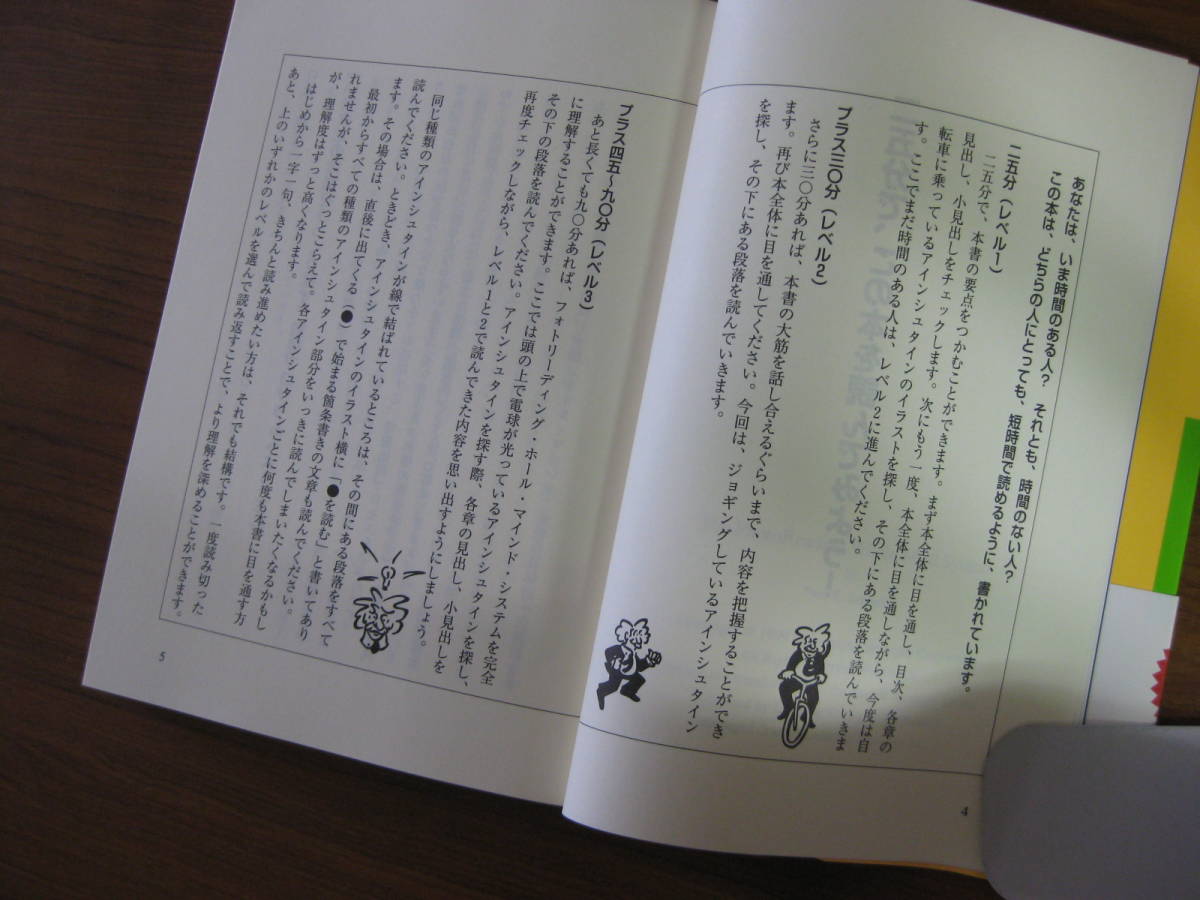 あなたは、いま時間のある人? それとも、時間のない人?
この本は、どちらの人にとっても、短時間で読めるように、書かれています。
二五分(レベル1)
二五分で、本書の要点をつかむことができます。まず本全体に目を通し、目次、各章の
見出し、小見出しをチェックします。次にもう一度、本全体に目を通しながら、今度は自
転車に乗っているアインシュタインのイラストを探し、その下にある段落を読んでいきま
す。ここでまだ時間のある人は、レベル2に進んでください。
プラス三〇分(レベル2)
さらに三〇分あれば、本書の大筋を話し合えるぐらいまで、内容を把握することができ
ます。再び本全体に目を通してください。今回は、ジョギングしているアインシュタイン
を探し、その下にある段落を読んでいきます。
4
プラス四五〜九〇分(レベル3)
あと長くても九〇分あれば、フォトリーディング・ホール・マインド・システムを完全
に理解することができます。ここでは頭の上で電球が光っているアインシュタインを探し、
その下の段落を読んでください。アインシュタインを探す際、各章の見出し、小見出しを
再度チェックしながら、レベル1と2で読んできた内容を思い出すようにしましょう。
同じ種類のアインシュタインが線で結ばれているところは、その間にある段落をすべて
読んでください。ときどき、アインシュタインのイラスト横に「●を読む」と書いてあり
ます。その場合は、直後に出てくる(●)で始まる箇条書きの文章も読んでください。
最初からすべての種類のアインシュタイン部分をいっきに読んでしまいたくなるかもし
れませんが、そこはぐっとこらえて。各アインシュタインごとに何度も本書に目を通す方
が、理解度はずっと高くなります。
はじめから一字一句、きちんと読み進めたい方は、それでも結構です。一度読み切った
あと、上のいずれかのレベルを選んで読み返すことで、より理解を深めることができます。
5